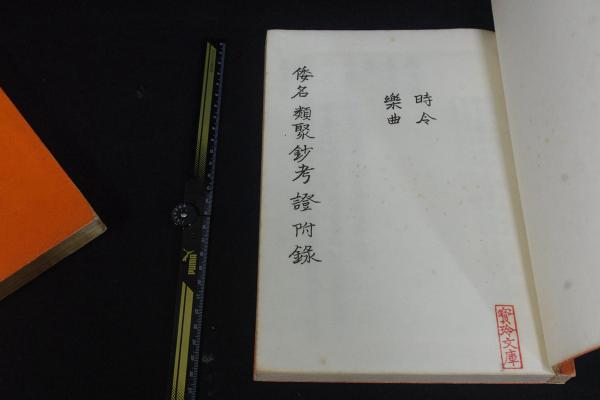 時令
樂曲
倭名類聚鈔考證附錄
寳玲文庫
PUMA